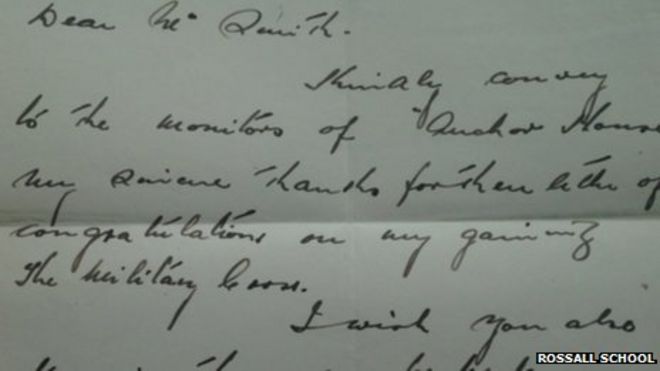 Dear Mr Smith.
Kindly convey
to the monitors of "Anchor House
my sincere thanks for their letter of
congratulations on my gaining
the military Cross.
I wish you also
ROSSALL SCHOOL